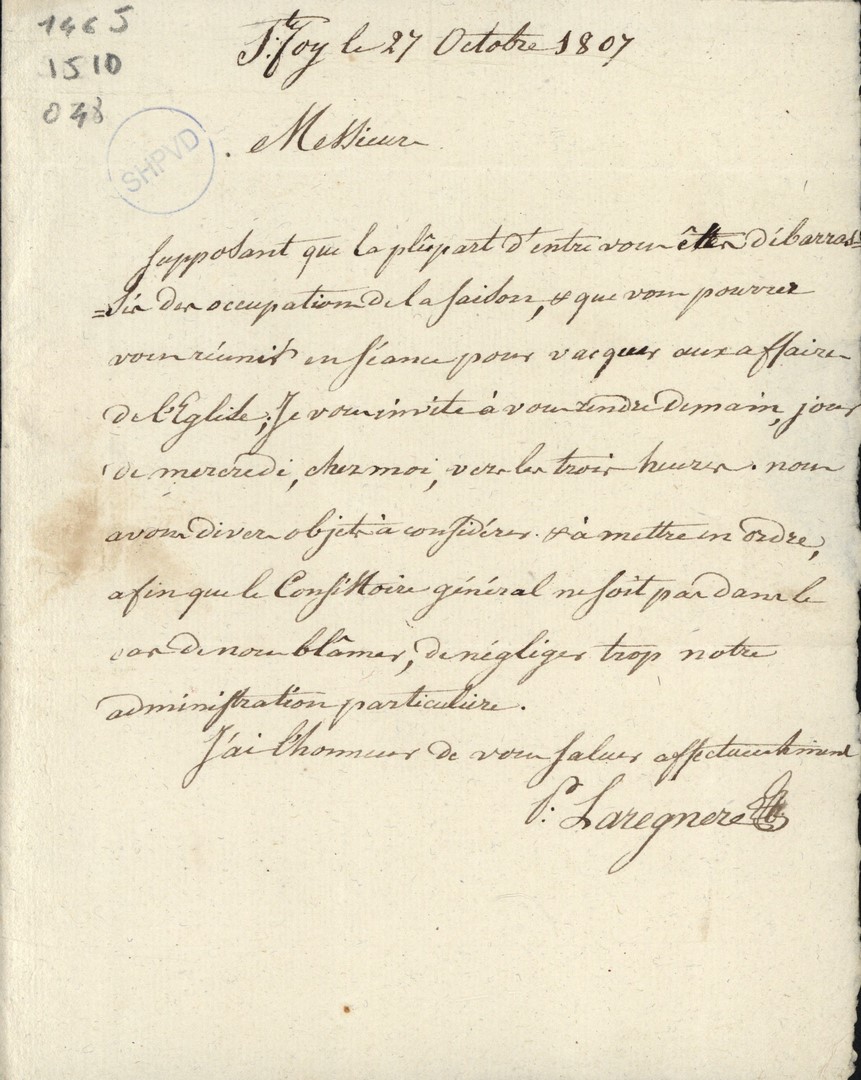 1465
1510
048
SHPVD
Ste. Foy le 27 Octobre 1807
Messieurs
Supposant que la plûpart d'entre vous êtes débarras=
=sés des occupations de la saison, & que vous pourrez
vous réunir en séance pour vacquer aux affaires
de l'Eglise; Je vous invite à vous rendre demain, jour
de mercredi, chez moi, vers les trois heures. nous
avons divers objets à considérer & à mettre en ordre,
afin que le Consistoire général ne soit pas dans le
cas de nous blâmer, de négliger trop notre
administration particuliere.
J'ai l'honneur de vous saluer affectueusement
P. Laregnere